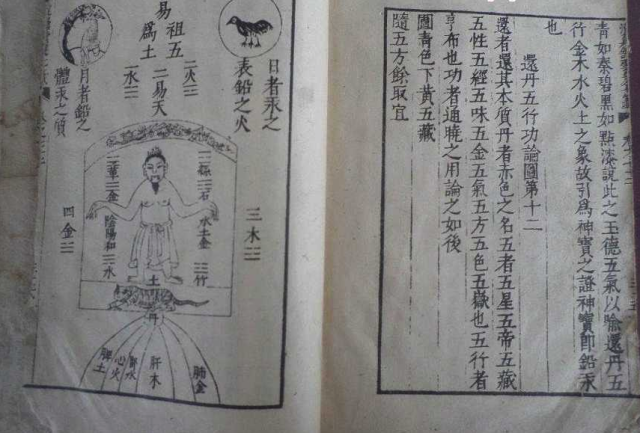 青如秦碧黑如點漆說此之玉德五氣以喻還丹五
行金木水火土之象故引爲神寶之證神寶即鉛汞
也
還丹五行功論圖第十二
還者還其本質丹者赤色之名五者五星五帝五藏
五性五經五味五金五氣五方五色五嶽也五行者
布也功者通曉之用論之如後
圖青色下黃五藏
隨五方餘取宜
日者汞之
表鉛之火
二火☲
五
土
祖
爲
易
二易天
一水☵
月者鉛之
體汞之質
三木☳
四金☱
石
水土金
竹
金
陰陽和
水
土
丹
肺金
肝木
腎水
心火
脾土